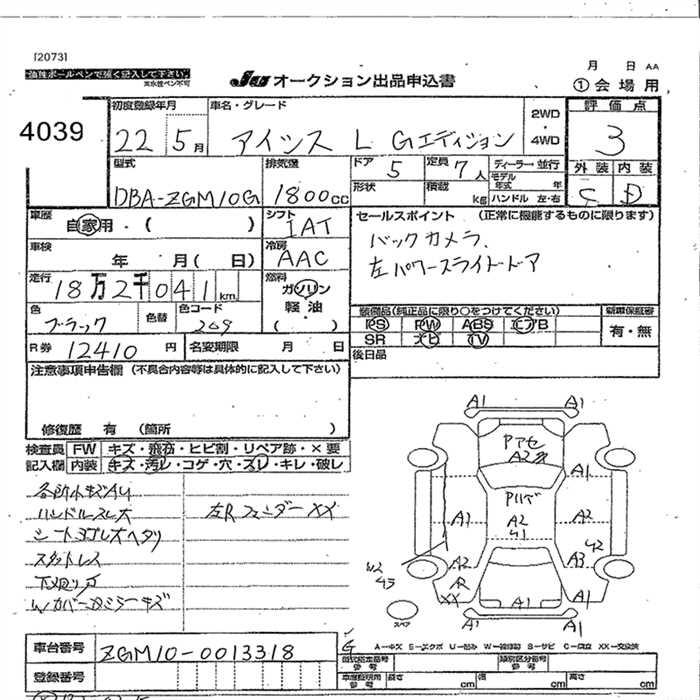 [2073]
油性ボールペンで強く記入して下さい。
※水性ペン不可
JU オークション出品申込書
月 日 AA
①会場用
4039
初度登録年月 車名・グレード 評価点
22 5月 アイシス L Gエディション 2WD・4WD 3
型式 排気量 ドア 定員 ディーラー 並行 外装 内装
DBA-ZGM10G 1800cc 5 7人 モデル年式 年 C D
形状 積載 kg ハンドル 左・右
車歴 自家用・( ) シフト IAT セールスポイント (正常に機能するものに限ります)
車検 年 月( 日) 冷房 AAC バックカメラ、
左パワースライドドア
走行 18万2千041km 燃料 ガソリン・軽油 ( )
色 ブラック 色替 色コード 209
装備品(純正品に限り○をつけてください) 新車保証書
PS PW ABS エアB 有・無
SR ナビ TV
R券 12410円 名変期限 月 日 後日品
注意事項申告欄 (不具合内容等は具体的に記入して下さい)
修復歴 有 (箇所 )
検査員記入欄 FW キズ・飛石・ヒビ割・リペア跡・×要
内装 キズ・汚レ・コゲ・穴・スレ・キレ・破レ
ハンドルスレ大 左Rフェンダー XX
A1 A1
PアセA2
A1 A1
A1 A2 A2
A2 A3 42
XX A1 A1
スペア
車台番号 ZGM10-0013318
登録番号
A-キズ E-エクボ U-凹み W-補修跡 S-サビ C-腐食 XX-交換済
型式指定番号 類別区分番号
車庫証明用参考 長さ cm 幅 cm 高さ cm